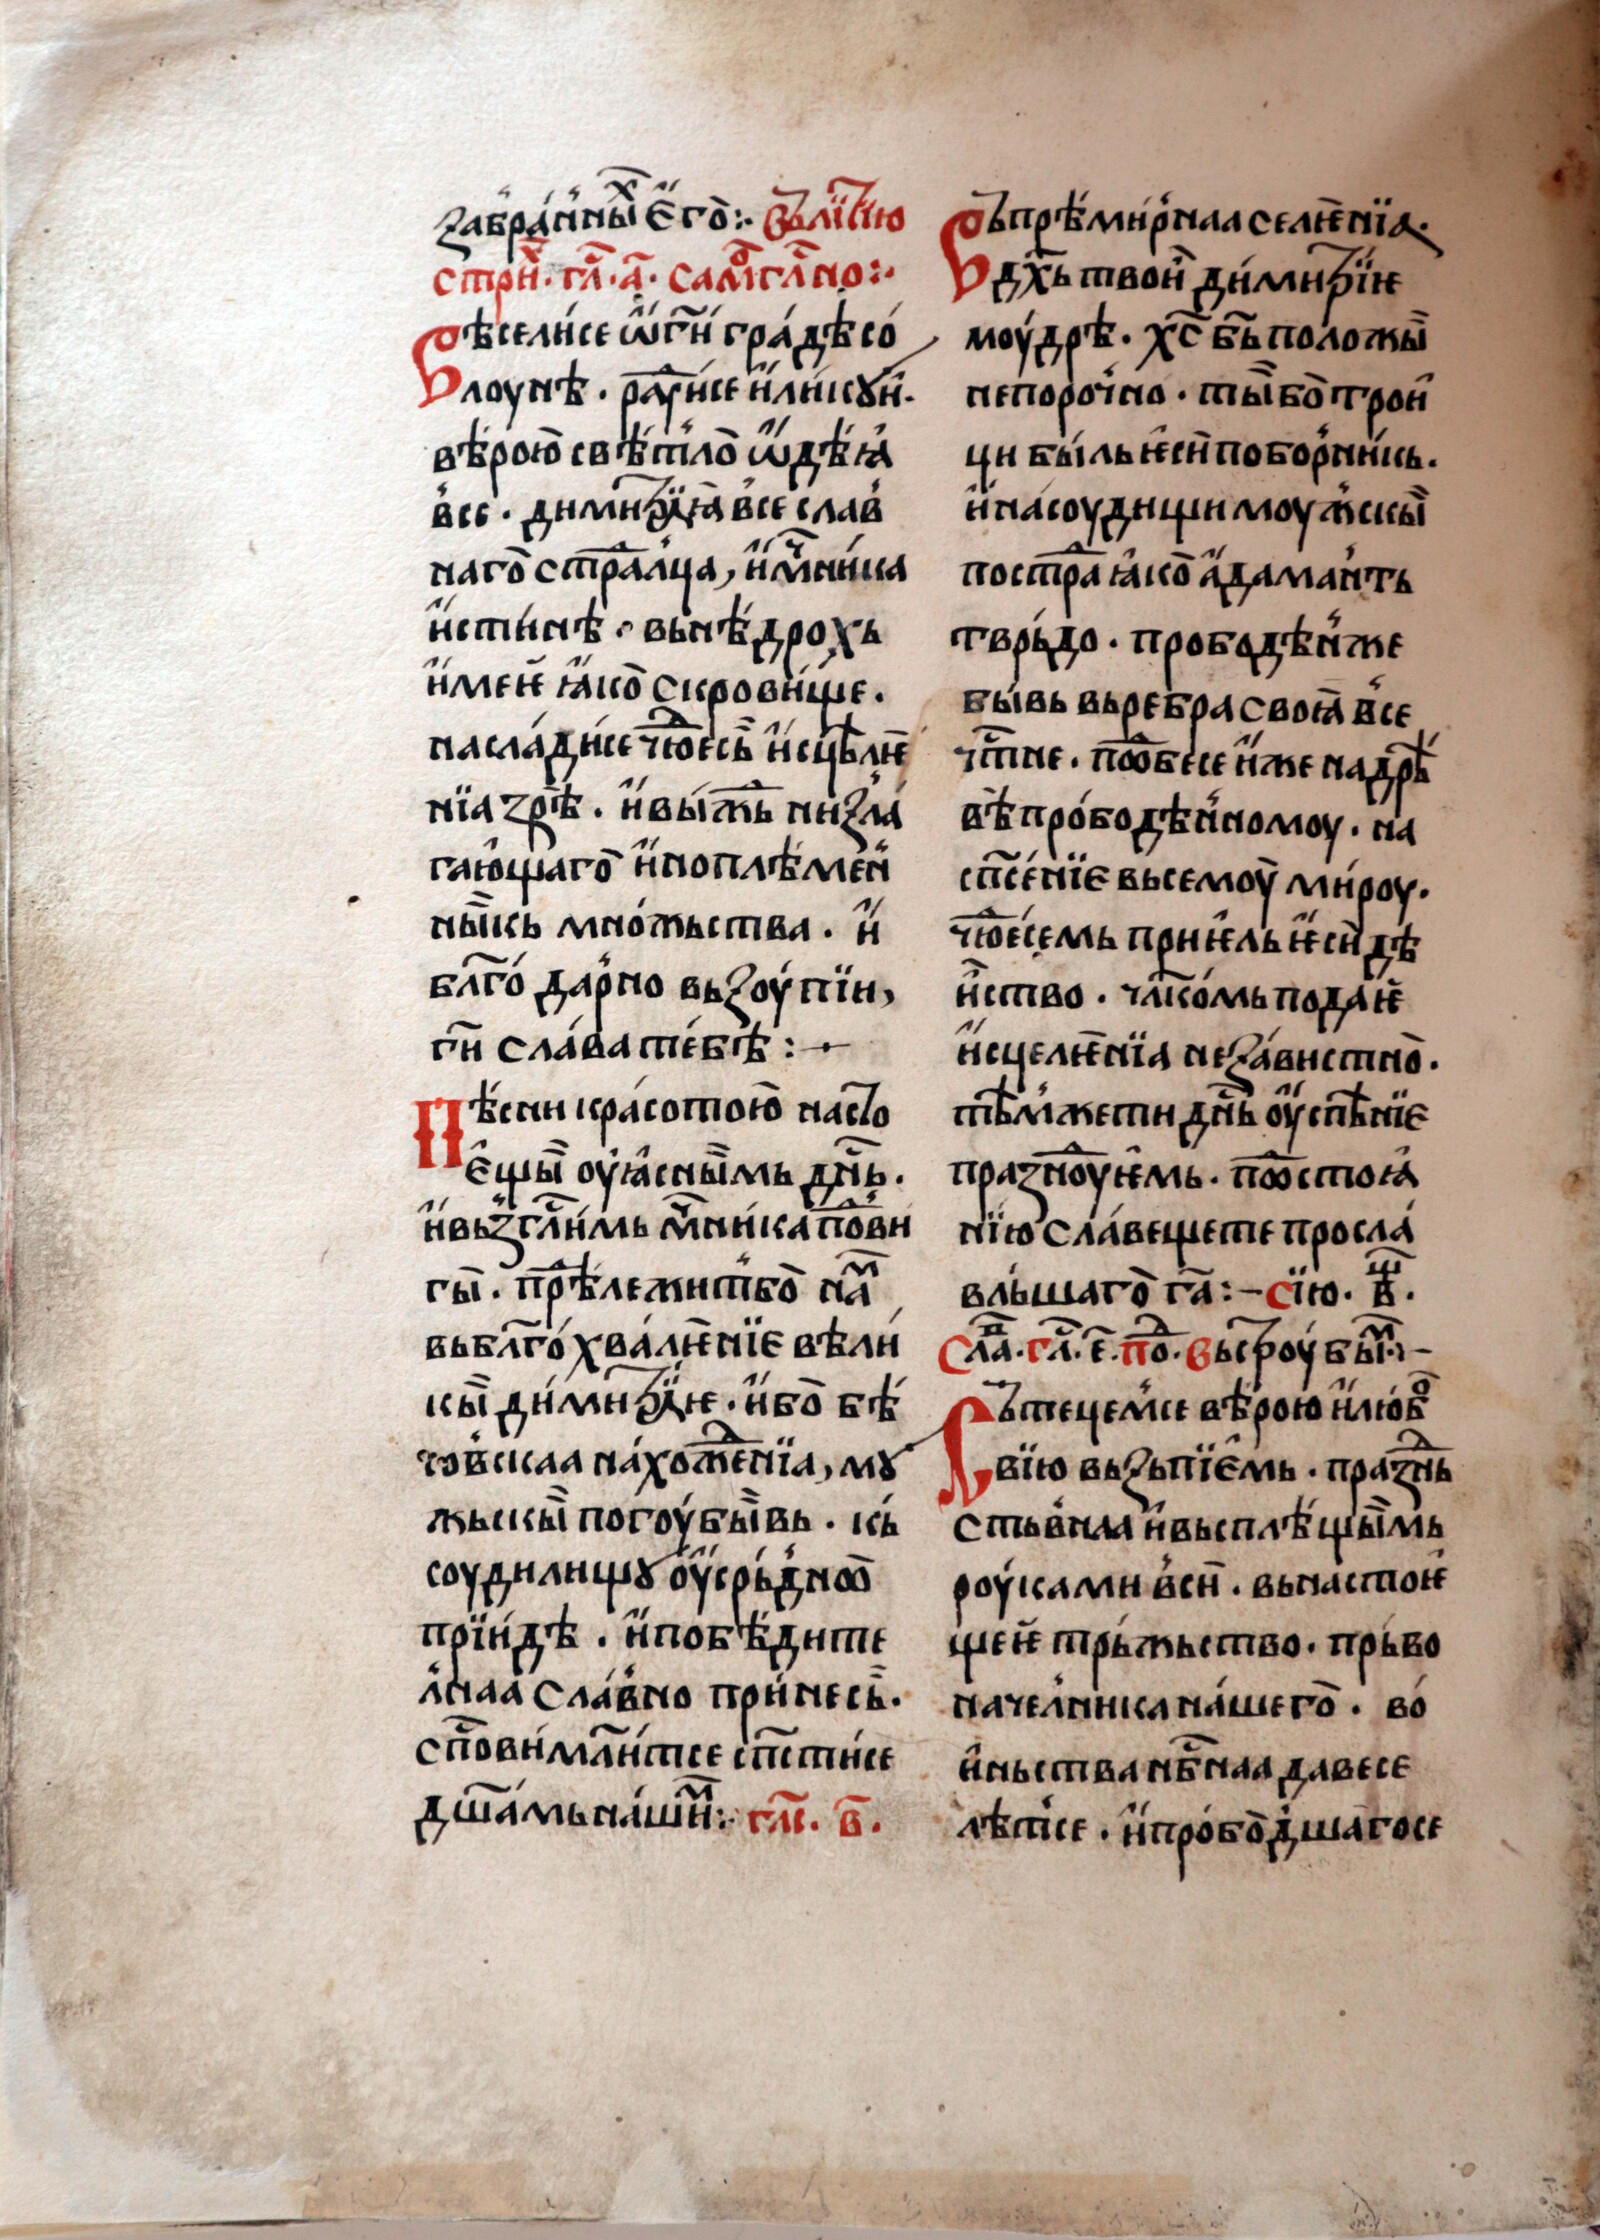 забра́нны̏х е҆го̀:· въ лиⷮїю
стрⷯи҃· гл҃· а҃· самѡгла́сно:·
Вѣсели́се ѡ҆ г҃и гра́де со́
лоунѣ · ра́ⷣꙋисе и҆ ликꙋи҆·
вѣ́рою̀ свѣ́тло̀ ѡ҆дѣꙗ́
в̾се · дими́трїꙗ̀ в̾се слав̾
наго̀ страда́лца, и҆ мч҃ни́ка
и҆́сти́нѣ · вь нѣ́дрохь
и҆́мене꙼ ꙗ҆́ко̀ скрови́ще ·
насла́дисе чю́десь̏ и҆сцѣлѥ
нїа зрѣ̀ · и҆ вы́жⷣь низла́
гаю҆щаго̀ и҆ноплѣ́мен̾
ны̏кь мно́жьства · и҆
бл҃го́дар̾но вьзоу́пїи,
г҃и сла́ва те́бѣ̀ :·—
Пѣ́сни кра́сотою̀ насто
е҆́щы̏ оу҆ꙗ́сны̏мь дн҃ь ·
и҆ вьзгл҃и́мь мч҃ни́ка пѡⷣви
гы̏ · прѣⷣлежи́тбо̀ наⷨ
вь бл҃го́хва́лѥнїе вѣли́
кы̏ ди́ми́трїѥ · и҆бо̀ бѣ́
сѡв̾скаа на́хожⷣенїа, мꙋ
жьскы̏ погоу́бы̏вь · кь
соудилищꙋ оу҆срь́дно̀
прїи́дѣ · и҆ побѣ́дите
л̾наа сла́в̾но при́несь̏·
сп҃ови́ мл҃и́тсе сп҃сти́се
дш҃а́мь на́шиⷨ:· гла҃с· в҃·
Въ прѣ́ми́р̾наа селѥ́нїа·
дх҃ь твои̏ ди́ми́трїѥ
моу́дрѣ · хс҃ бь҃ поло́жы̏
непоро́ч̾но · ты̏ бо̀ трои҆
ци бы́ль ѥси̏ побор̾ни́кь·
и҆ на соу́дищи моуж̾скы̏
постраⷣ ꙗ҆́ко̀ а҆дама́н̾ть
тврь́до · прободѣ́н̾же
бы́вь вь ребра своꙗ̀ в̾се
чт҃не · поⷣѡбесе и҆же на дрѣ̀
вѣ̀ про́бодѣн̾номоу · на
сп҃се́нїе вьсемоу̀ ми́роу·
чю́десемь приѥ҆ль ѥ҆си̏ дѣ
и҆́ство · чл҃ко́мь пода́ѥ
и҆сцелѥ́нїа неза́вистно̀·
тѣм̾же ти дн҃ь оу҆спѣ́нїе
празноⷣу́ѥмь · пⷣостоꙗ
нїю сла́вещете просла́
вль́шаго̀ г҃а:— сїю· вⷳ·
сла҃ⷡ· гл҃· е҃· по· въстрⷣоу бы̏ⷨ·—
Сътецем̾се вѣ́рою и҆ лю́бⷪ
вїю вьзьпїе́мь · празⷣнь
стьв̾наа и҆ вьсплѣ́щы̏мь
роука́ми в̾си̏ · вь настоѥ̀
щеѥ̏ трь́жьство · прьво
начел̾ника на́шего̀ · во́
и҆ньства нб҃наа да весе
лѣ́тсе · и҆ про́бо́дшагосе